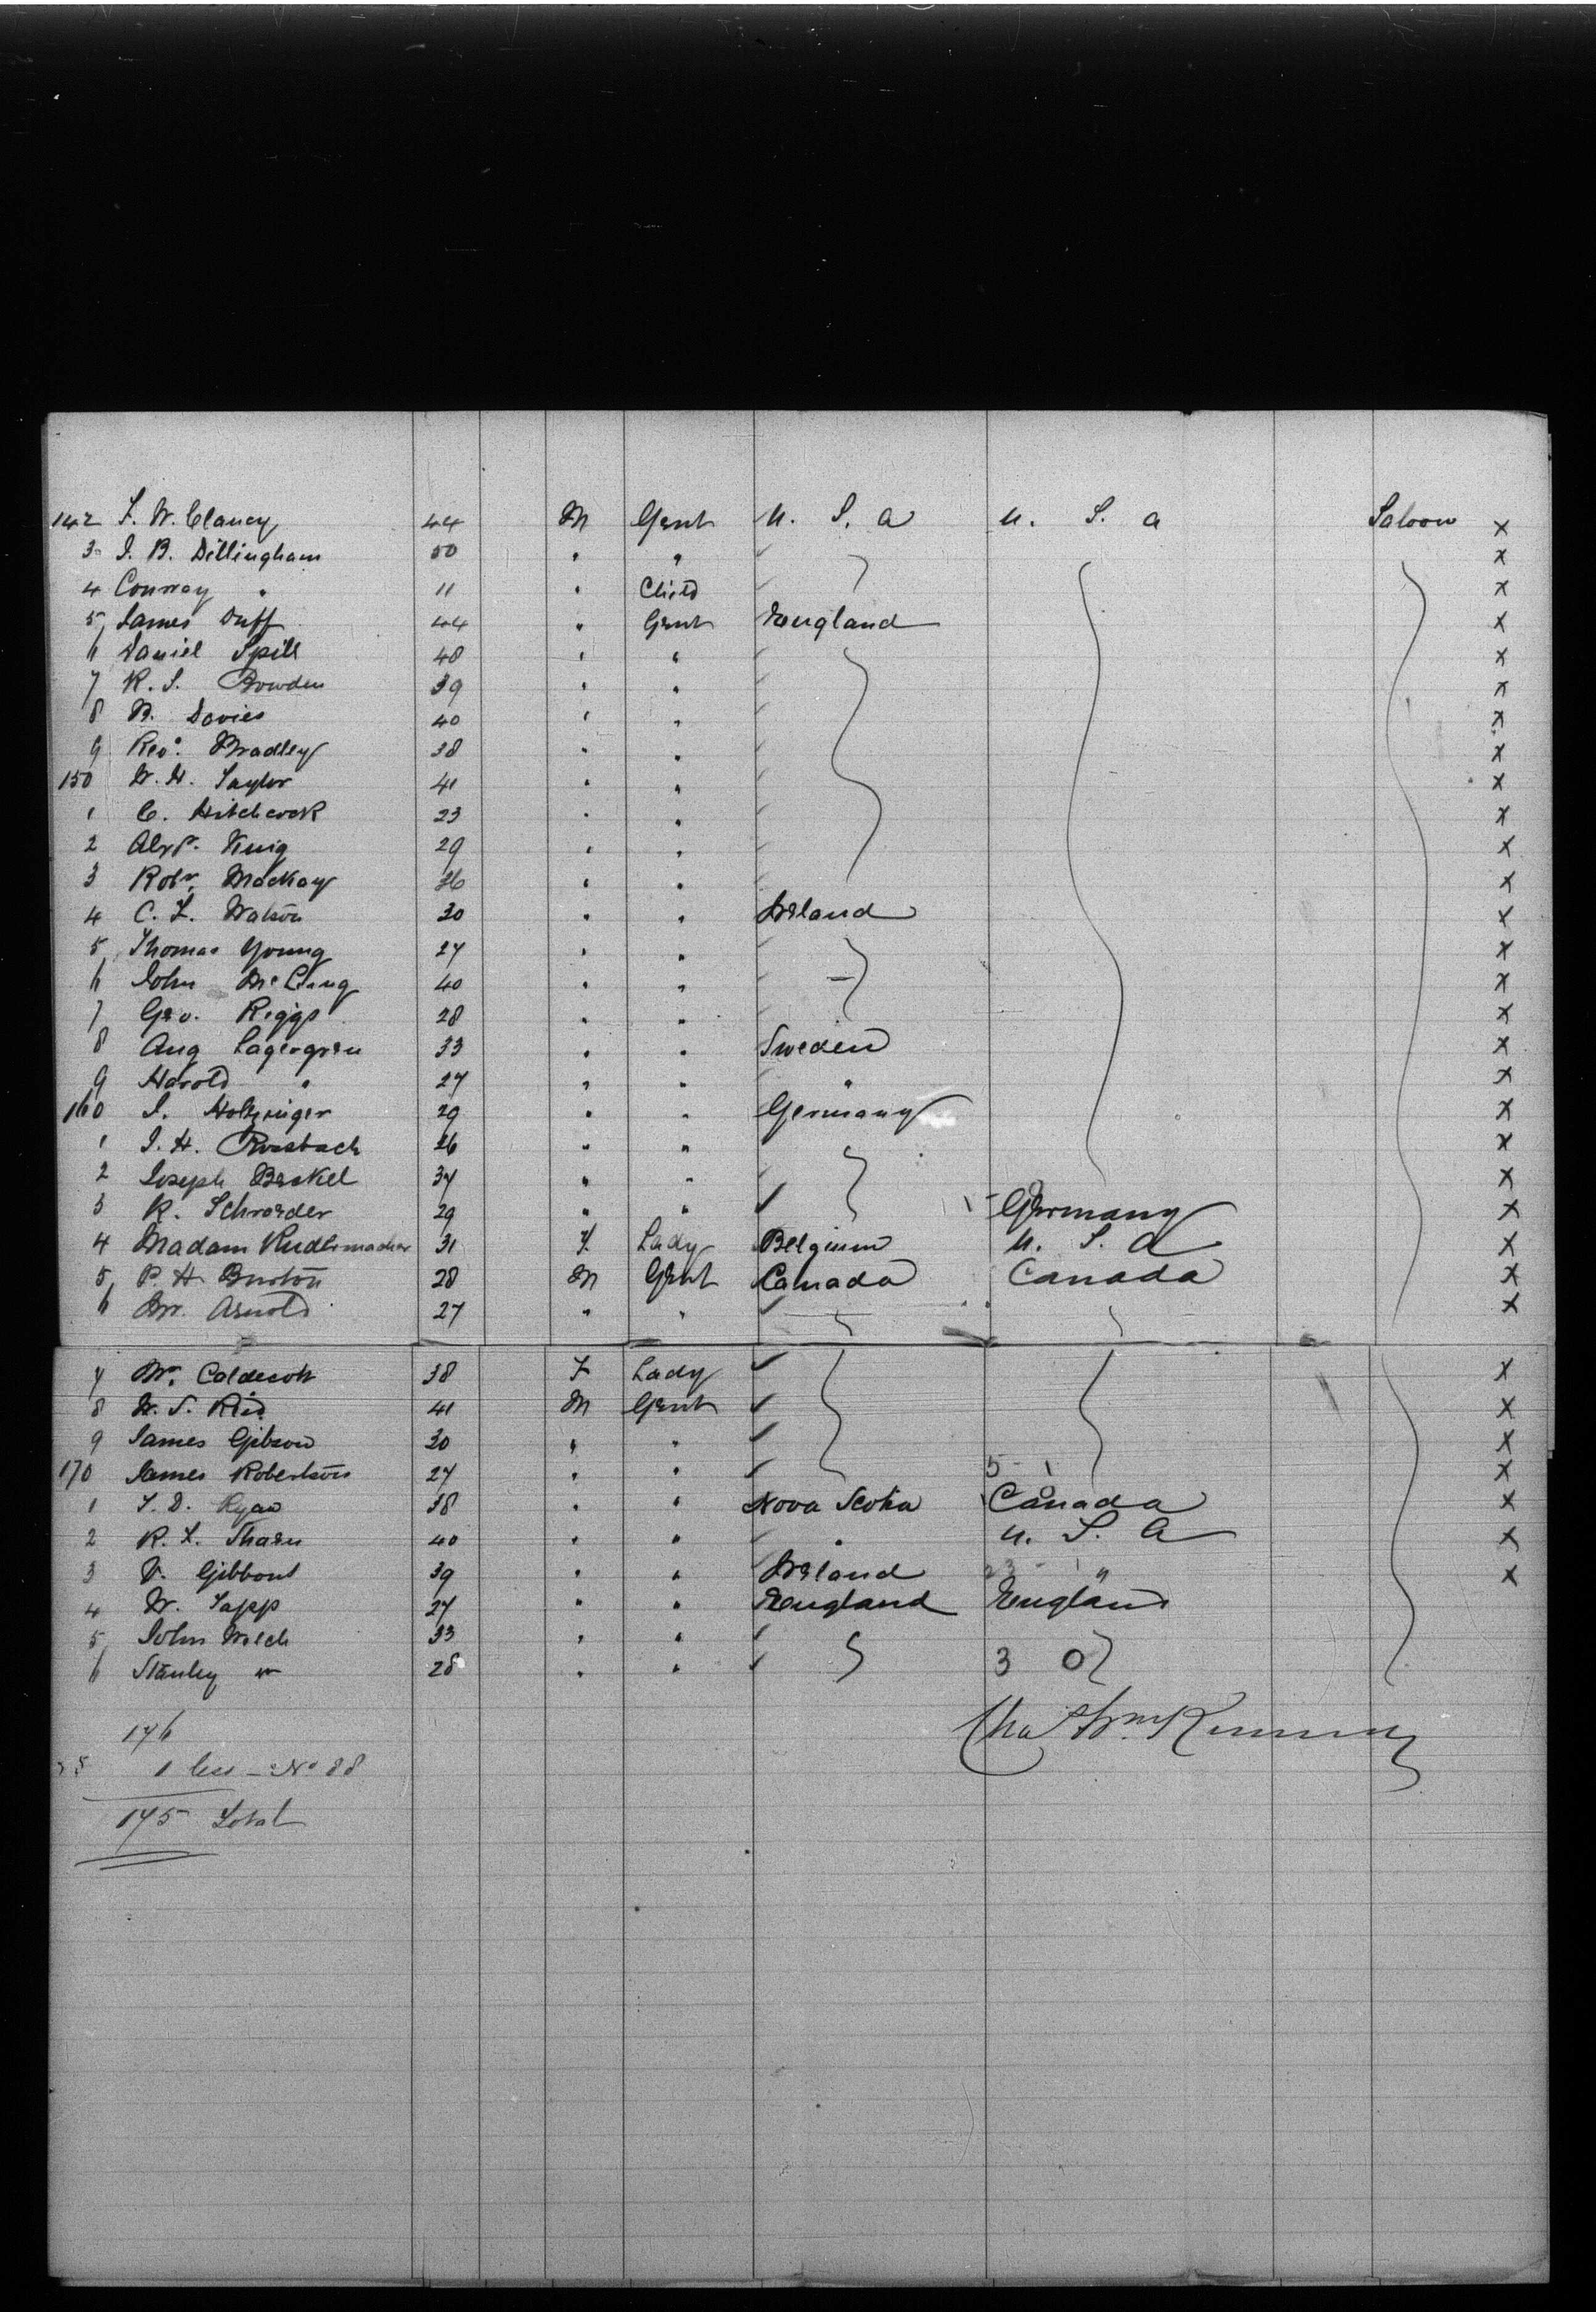 142 F. W. Clancy 44 M Gent U. S. A U. S. A Saloon X
3 I. B. Dillingham 50 " " X
4 Conway " 11 " Child X
5 James Duff 44 " Gent England X
6 Daniel Spill 48 " " X
7 R. S. Bowden 39 " " X
8 B. Davies 40 " " X
9 Revd. Bradley 38 " " X
150 W. H. Taylor 41 " " X
1 C. Hitchcock 23 " " X
2 29 " " X
3 Robt. Mackay 36 " " X
4 C. L. Watson 30 " " Ireland X
5 Thomas Young 27 " " X
6 John 40 " " X
7 Geo. Riggs 28 " " X
8 Aug Lagergren 33 " " Sweden X
9 Harold " 27 " " " X
160 S. Holzinger 29 " " Germany X
1 I. H. Rossbach 26 " " X
2 Joseph 34 " " X
3 R. Schroeder 29 " " Germany X
4 Madam 31 F. Lady Belgium U. S. A X
5 P. H. Burton 28 M Gent Canada Canada X
6 Mr. Arnold 27 " " X
7 Caldecott 38 F Lady X
8 W. S. Reid 41 M Gent X
9 James Gibson 30 " " X
170 James Robertson 27 " " 5 1 X
1 T. D. Ryan 38 " " Nova Scotia Canada X
2 R. L. 40 " " " U. S. A X
3 V. Gibbons 39 " " Ireland " X
4 W. Tapp 27 " " England England
5 John Welch 33 " "
6 Stanley 28 " " 3 0
176
1 less - No 88
175 Total